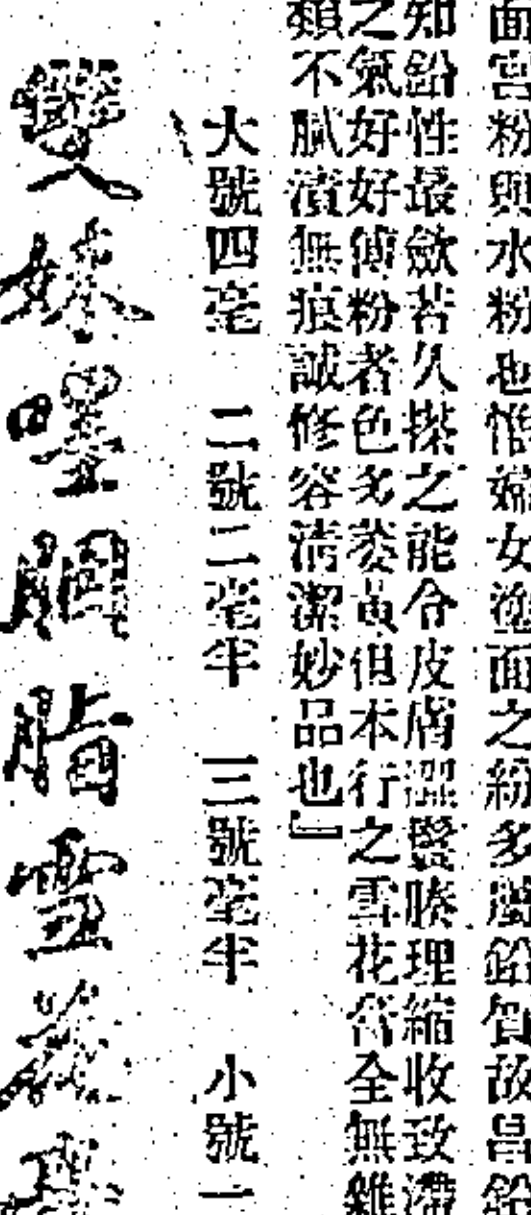 面宮粉與水粉也惟婦女塗面之粉多屬鉛質故昌鉛
知鉛性最歛若久搽之能令皮膚澀豎腠理縮收致滯
之氣好好傅粉者色多萎黃但本行之雪花膏全無雜
類不膩漬無痕誠修容清潔妙品也』
大號四毫 二號二毫半 三號毫半 小號一
雙妹嘜胭脂雪花